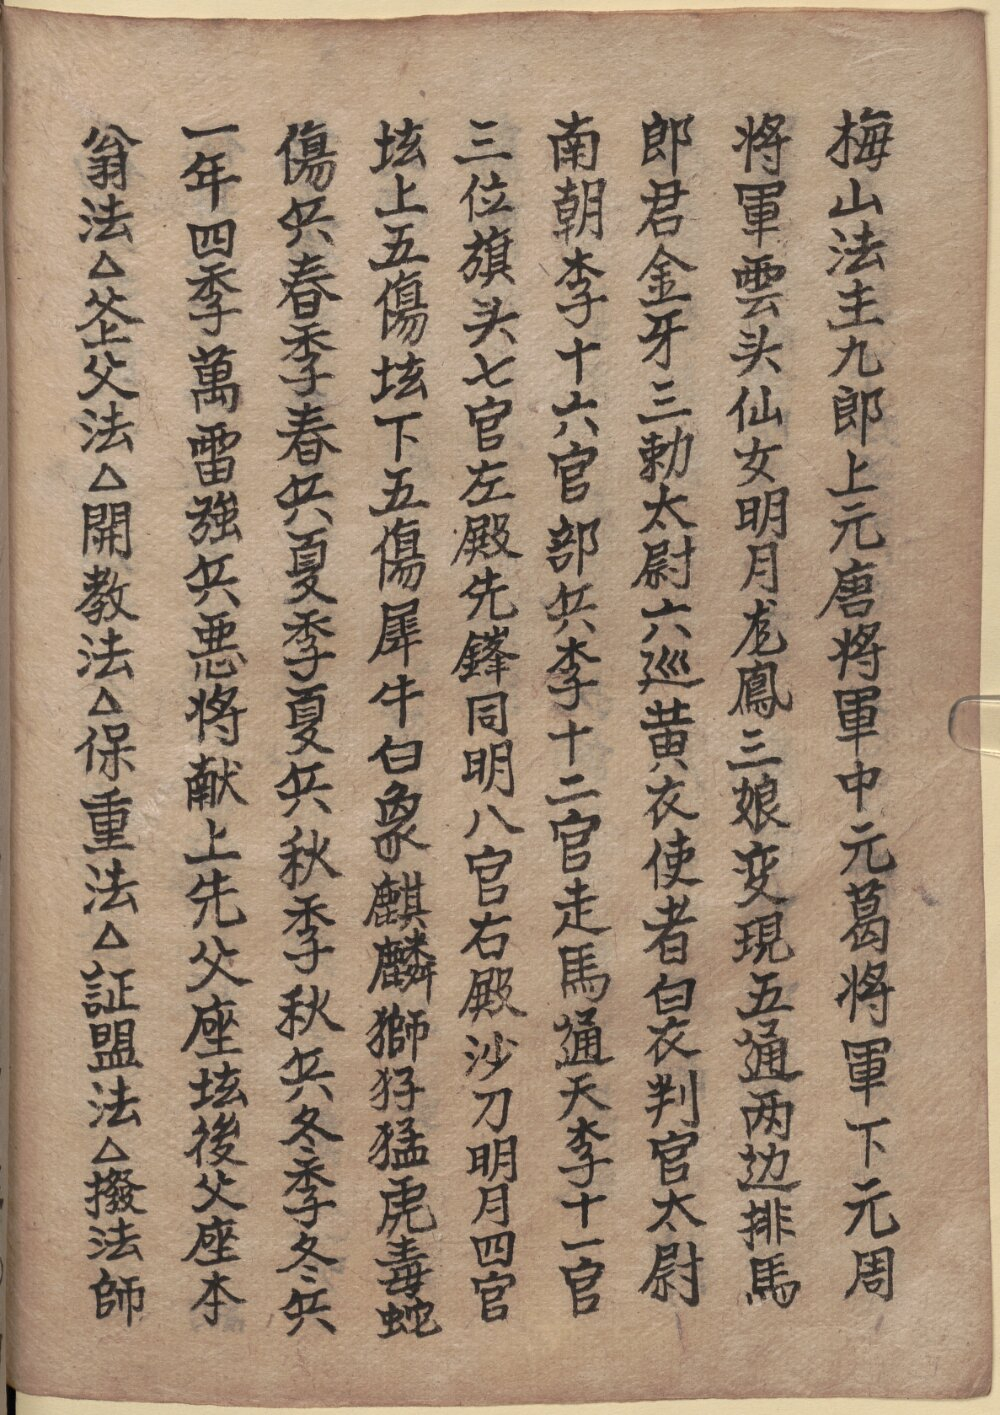 梅山法主九郎上元唐将軍中元葛将軍下元周
将軍雲头仙女明月龙鳳三娘变現五通两边排馬
郎君金牙三勅太尉六巡黄衣使者白衣判官太尉
南朝李十六官部兵李十二官走馬通天李十一官
三位旗头七官左殿先鋒同明八官右殿沙刀明月四官
坛上五傷坛下五傷犀牛白象麒麟獅犲猛虎毒蛇
傷兵春季春兵夏季夏兵秋季秋兵冬季冬兵
一年四季萬雷強兵悪将献上先父座坛後父座本
翁法△父法△開教法△保重法△証盟法△撥法師